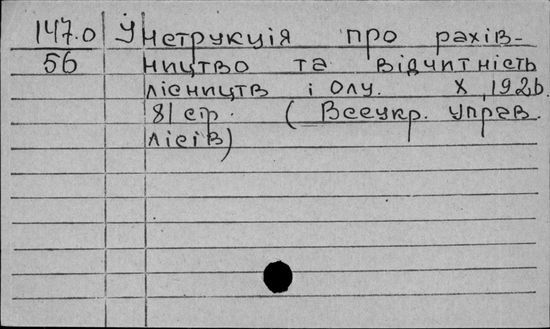 147.0 У Інструкція про рахів-
56 ництво та відчитність
лісництв і олу. Х, 1926.
81 стр. (Всеукр. управ.
лісів)